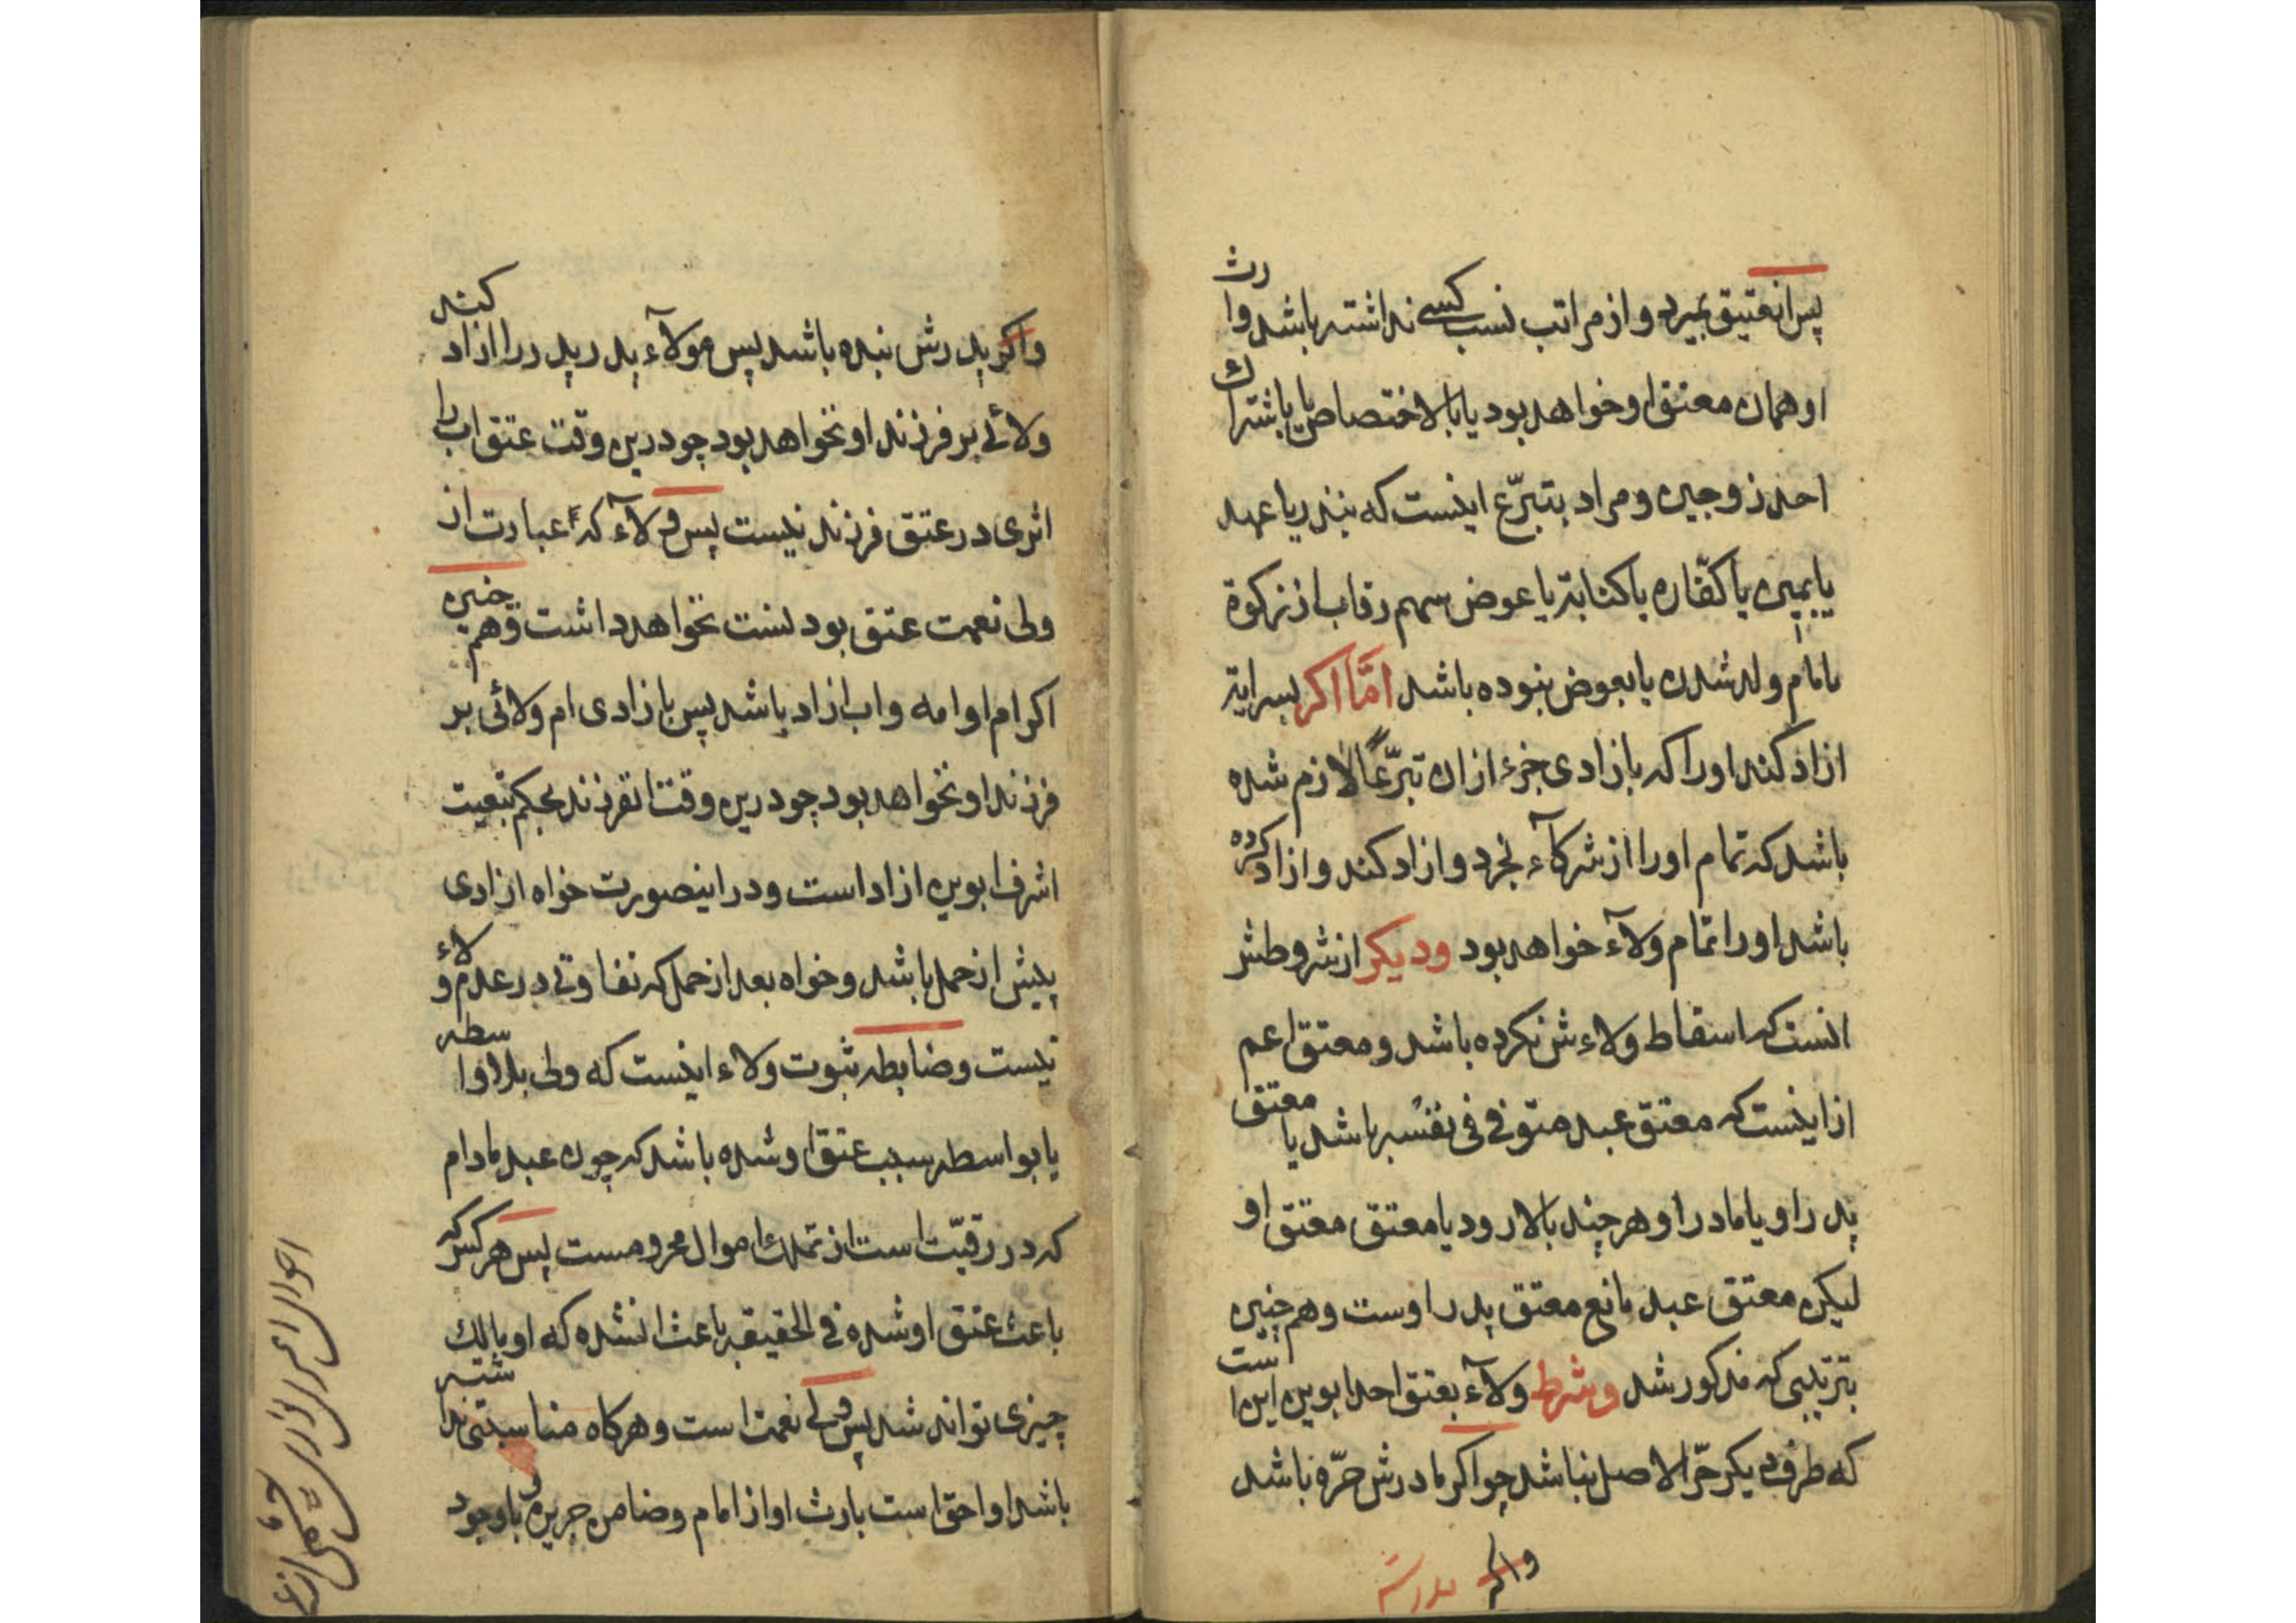 پس انعتیق بمیرد و از مراتب نسب کسی نداشته باشد وارث
او همان معتق او خواهد بود یا بالاختصاص یا باشتراک
احد زوجین و مراد بتبرّع اینست که بنذر یا عهد
یا یمین یا کفّاره یا کتابة یا عوض سهم رقاب از زکوة
یا مام ولد شدن یا بعوض نبوده باشد امّا اکر بسرایة
ازاد کند او را که بازادی جزء از ان تبرّعًا لازم شده
باشد که تمام او را از شرکآء بخرد و ازاد کند و ازاد کرده
باشد او را تمام ولآء خواهد بود و دیکر از شروطش
انست که اسقاط ولاءش نکرده باشد و معتق اعم
از اینست که معتق عبد متوفی فی نفسه باشد یا معتق
پدر او یا مادر او هر چند بالا رود یا معتق معتق او
لیکن معتق عبد مانع معتق پدر اوست و هم چنین
بترتیبی که مذکور شد و شرط ولآء بعتق احد ابوین این است
که طرف دیکر حرّ الاصل نباشد چو اکر مادرش حرّه باشد
و اکر پدرش
و اکر پدرش بنده باشد پس مولآء پدر پدر را ازاد کنند
ولائی بر فرزند او نخواهد بود چو درین وقت عتق اب را
اثری در عتق فرزند نیست پس ولآء که عبارت از
ولی نعمت عتق بود نسبت نخواهد داشت و هم چنین
اکر ام او امه و اب ازاد باشد پس بازادی ام ولائی بر
فرزند او نخواهد بود چو درین وقت انفرزند بحکم تبعیت
اشرف ابوین ازاد است و در اینصورت خواه ازادی
پیش از حمل باشد و خواه بعد از حمل که تفاوتی در عدم ولاء
نیست و ضابطه ثبوت ولاء اینست که ولی بلا واسطه
یا بواسطه سبب عتق او شده باشد که چون عبد مادام
که در رقیّت است از تملک اموال محرومست پس هر کس که
باعث عتق او شده فی الحقیقه باعث انشده که او مالک
چیزی تواند شد پس ولی نعمت است و هرکاه مناسبتی نداشته
باشد او احق است بارث او از امام و ضامن جریره و باوجود